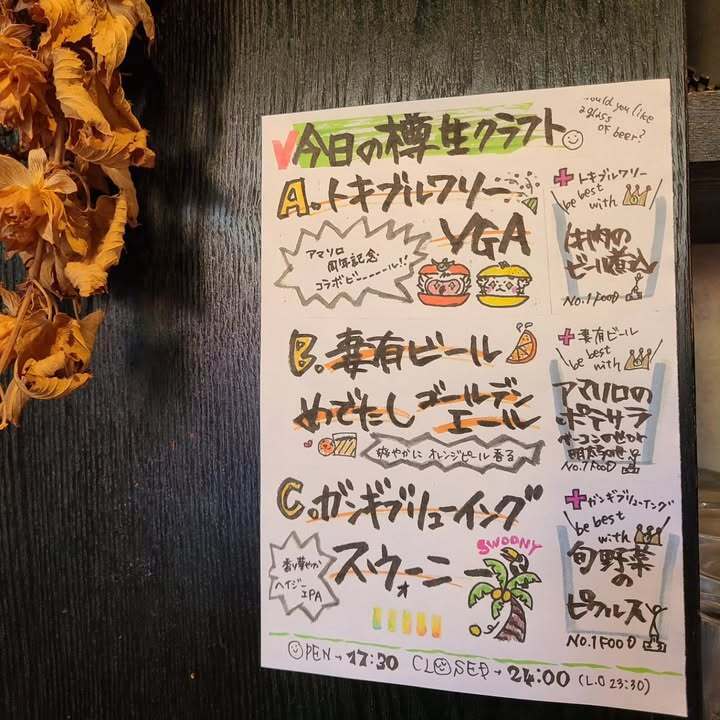 今日の樽生クラフト
would you like
a glass
of beer?
A.トキブルワリー
VGA
アマソロ
周年記念
コラボビーーーール!!
+トキブルワリー
be best
with
牛肉の
ビール煮込
No.1 FOOD
B.妻有ビール
めでたし ゴールデン
エール
爽やかに オレンジピール 香る
+妻有ビール
be best
with
アマソロの
ポテサラ
ベーコンのせor
明太のせ
No.1 FOOD
C.ガンギブリューイング
スウォーニー
SWOONY
香り華やか
ヘイジー
IPA
+ガンギブリューイング
be best
with
旬野菜
の
ピクルス
No.1 FOOD
OPEN→17:30 CLOSED→24:00 (L.O 23:30)